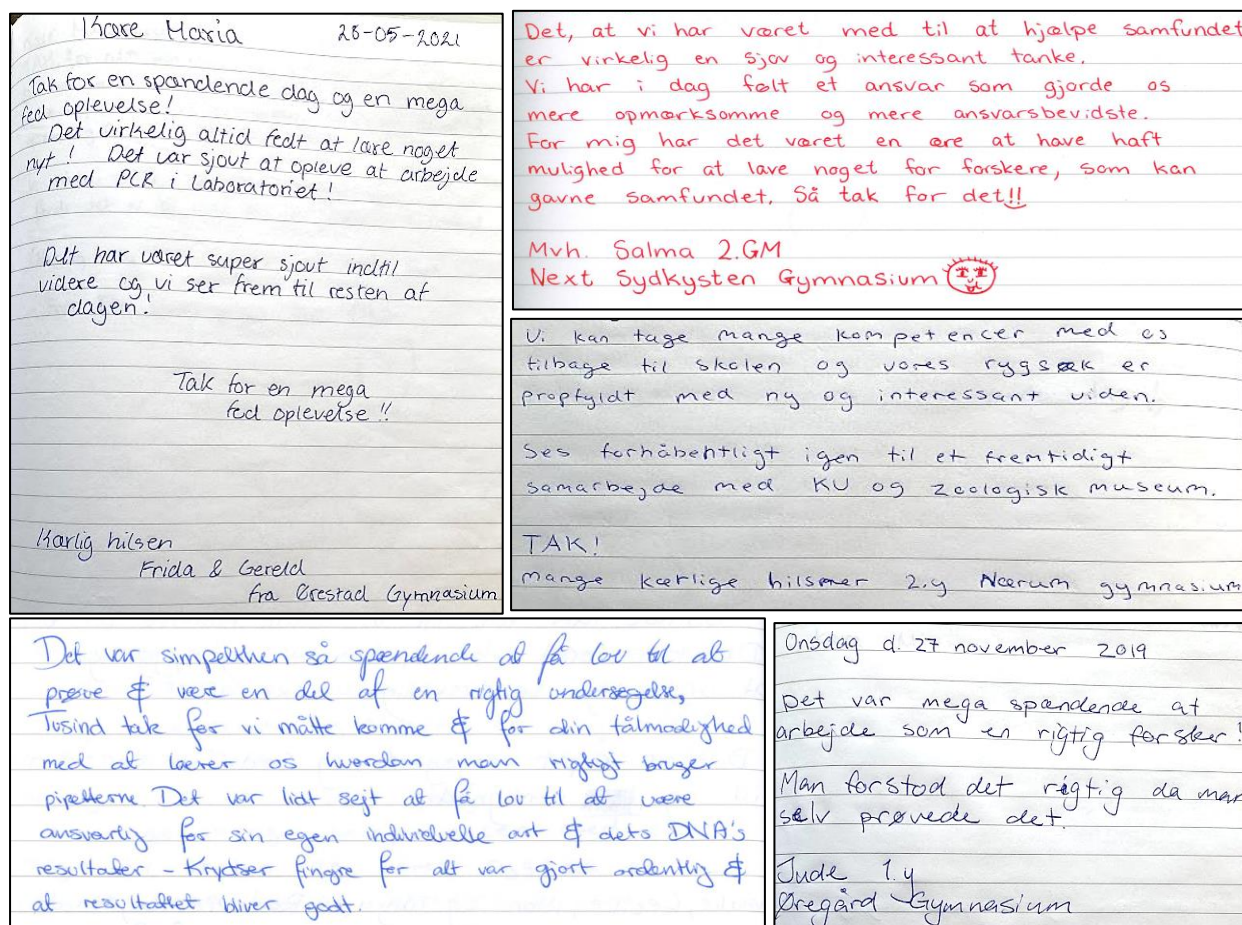 Kære Maria 28-05-2021
Tak for en spændende dag og en mega
fed oplevelse!
Det virkelig altid fedt at lære noget
nyt! Det var sjovt at opleve at arbejde
med PCR i Laboratoriet!
Det har været super sjovt indtil
videre og vi ser frem til resten af
dagen!
Tak for en mega
fed oplevelse!!
Kærlig hilsen
Frida & Gereld
fra Ørestad Gymnasium
Det, at vi har været med til at hjælpe samfundet
er virkelig en sjov og interessant tanke.
Vi har i dag følt et ansvar som gjorde os
mere opmærksomme og mere ansvarsbevidste.
For mig har det været en ære at have haft
mulighed for at lave noget for forskere, som kan
gavne samfundet. Så tak for det!!
Mvh. Salma 2.GM
Next Sydkysten Gymnasium
Vi kan tage mange kompetencer med os
tilbage til skolen og vores rygsæk er
propfyldt med ny og interessant viden.
Ses forhåbentligt igen til et fremtidigt
samarbejde med KU og Zoologisk museum.
TAK!
Mange kærlige hilsner 2.y Nærum gymnasium
Det var simpelthen så spændende at få lov til at
prøve & være en del af en rigtig undersøgelse,
Tusind tak for vi måtte komme & for din tålmodighed
med at lærer os hvordan man rigtigt bruger
pipetterne. Det var lidt sejt at få lov til at være
ansvarlig for sin egen individuelle art & dets DNA's
resultater - Krydser fingre for alt var gjort ordentlig &
at resultatet bliver godt.
Onsdag d. 27 november 2019
Det var mega spændende at
arbejde som en rigtig forsker!
Man forstod det rigtig da man
selv prøvede det.
Jude 1.y
Øregård Gymnasium